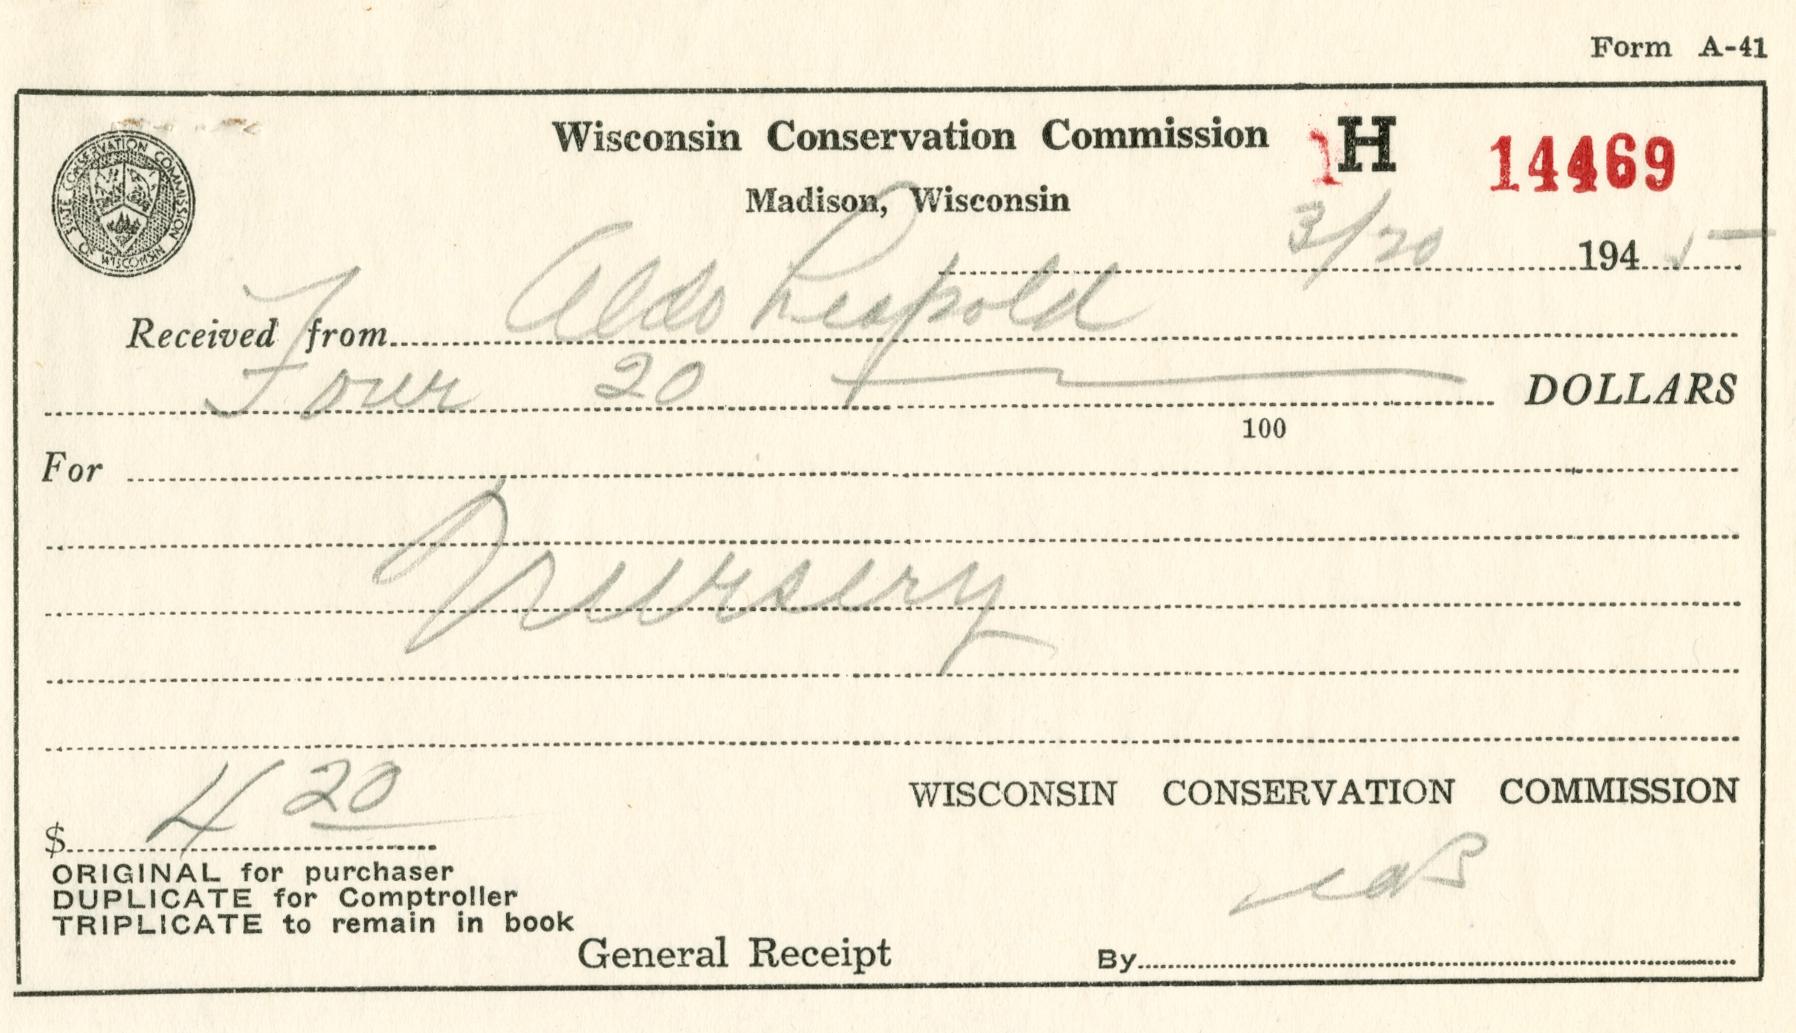 Form A-41
Wisconsin Conservation Commission H 14469
Madison, Wisconsin
3/20 1945
Received from Aldo Leopold
Four 20 DOLLARS
100
For
Nursery
$ 4 20
WISCONSIN CONSERVATION COMMISSION
ORIGINAL for purchaser
DUPLICATE for Comptroller
TRIPLICATE to remain in book
General Receipt By